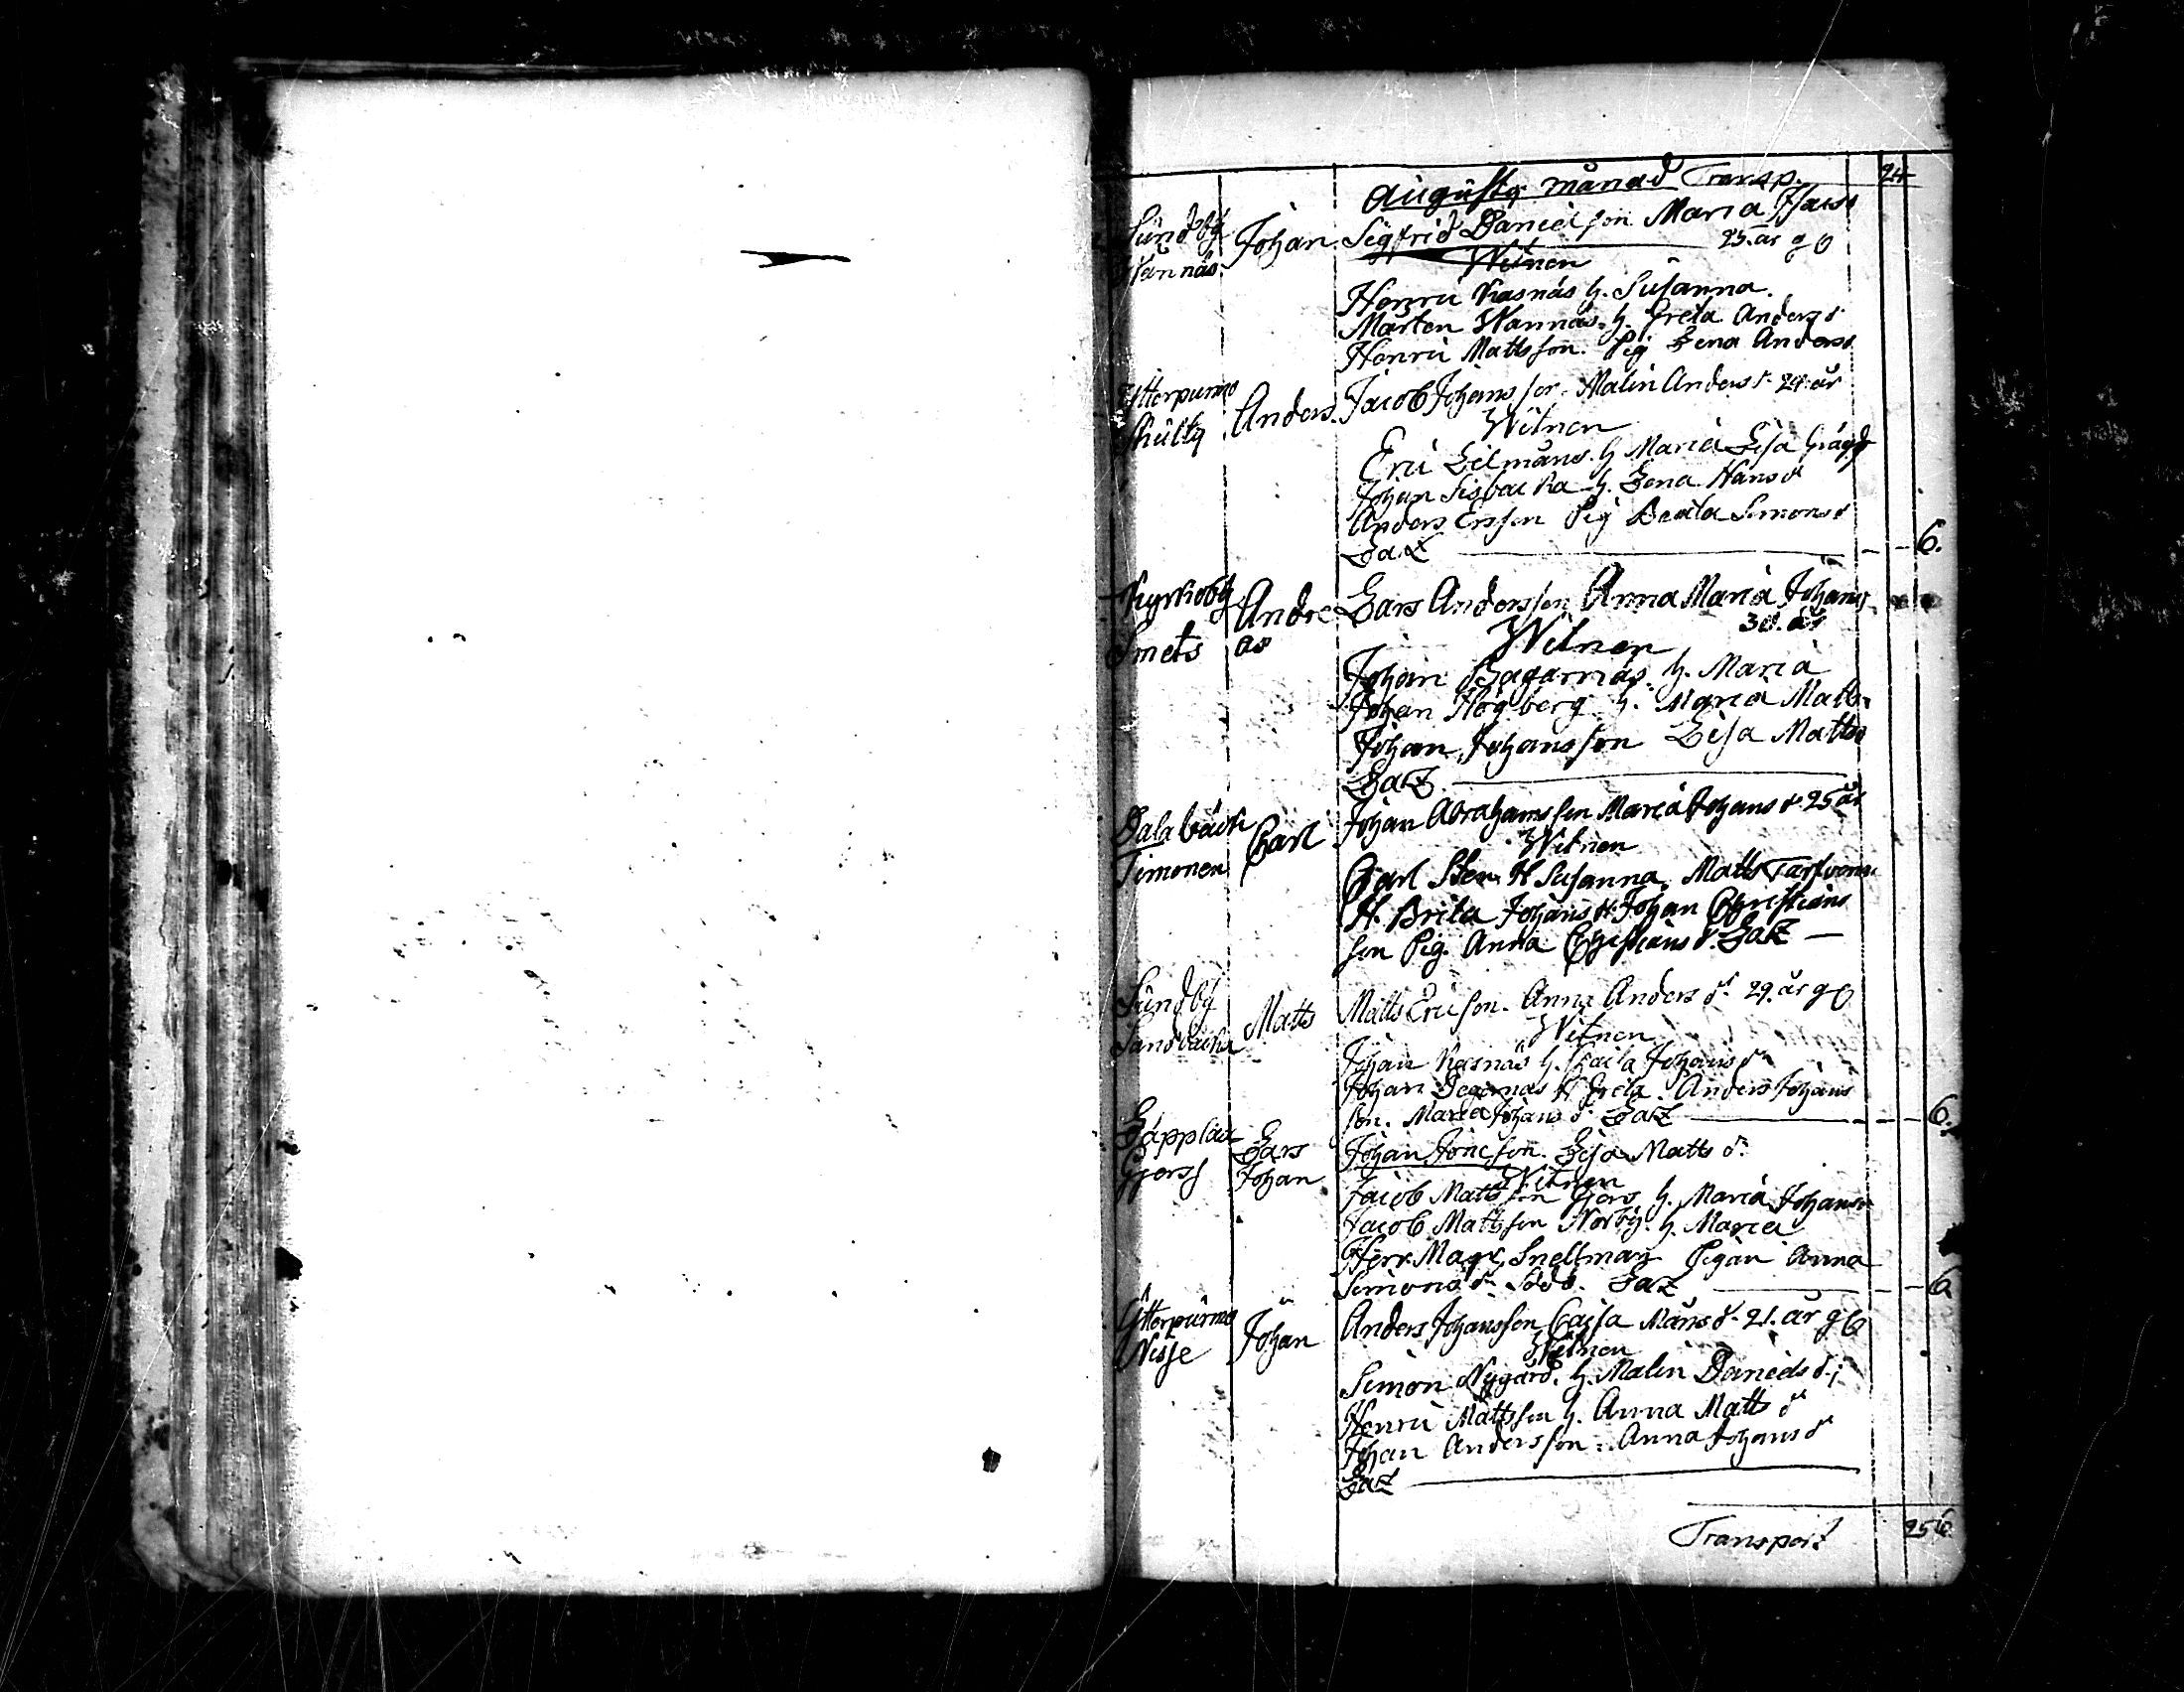 Augusty månad Transp. 24
Sundby Johan Sigfrid Danielson Maria Hans
25. år g
Witnen
Henric Kasnäs h. Susanna.
Mårten Wannäs. h. Greta Anders d
Henric Mattsson. Pig Lena Anders
Ytterpurmo Anders. Jacob Johansson. Malin Anders d. 24. år
Witnen
Eric h Maria Lisa
Johan Sisbacka h. Lena Hans d
Anders Ersson Pig Beata Simons d
6.
Kyrkoby Andre Lars Andersson Anna Maria Johans
as 30. år
Smets Witnen
Johan Bagarnäs. h. Maria
Johan Högberg h. Maria Matts
Johan Johansson Lisa Matts
Dalabäck Carl Johan Abrahamsson Maria Johans d 25 år
Timonen Witnen
Carl Sten H Susanna, Matts
H. Brita Johans d. Johan Christians
son Pig. Anna Christians d.
Sundby Matts Matts Ericson. Anna Anders d. 29. år g
Sandbacka Witnen
Johan Kasnäs h. Johans d
Johan Degernäs H Greta. Anders Johans
son. Maria Johans d. 6.
Lepplax Lars Johan Lisa Matts d.
Gjers Johan Witnen
Jacob Mattsson Gers h. Maria Johans
Jacob Mattsson Norby. h. Maria
Herr Mag. Snellman Pigan Anna
Simons d. 6
Ytterpurmo Johan Anders Johansson Cajsa Måns d. 21. år g
Nisse Witnen
Simon Nygård. h. Malin Daniels d.
Henric Mattsson h. Anna Matts d
Johan Andersson. Anna Johans d
Transport 256